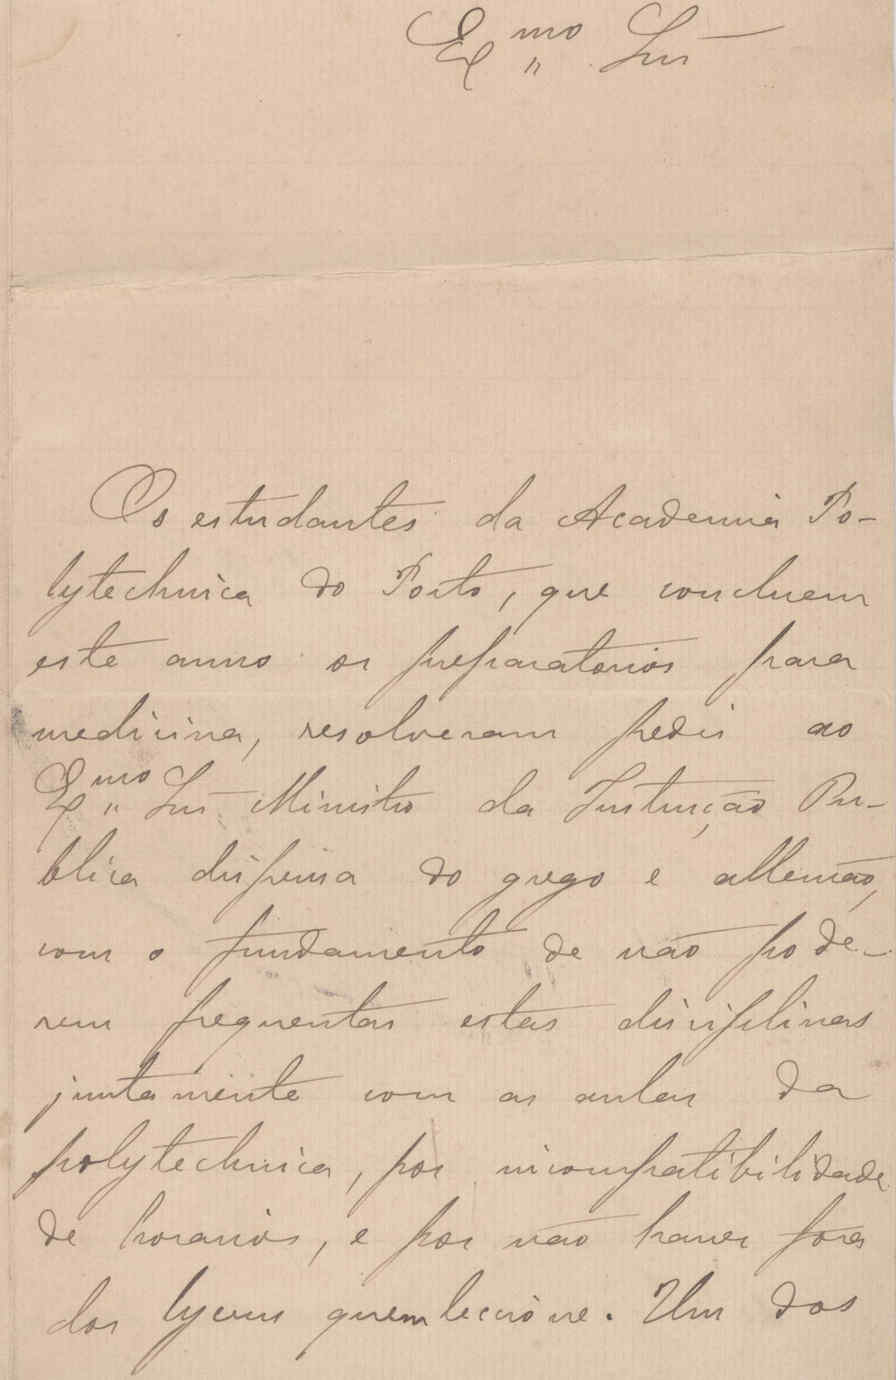 Ex.mo Snr
Os estudantes da Academia Po-
lytechnica do Porto, que concluem
este anno os preparatorios para
medicina, resolveram pedir ao
Ex.mo Snr Ministro da Instrucção Pu-
blica dispensa do grego e allemão,
com o fundamento de não pode-
rem frequentar estas disciplinas
juntamente com as aulas da
polytechnica, por incompatibilidade
de horarios, e por não haver fora
dos lyceus quem leccione. Um dos